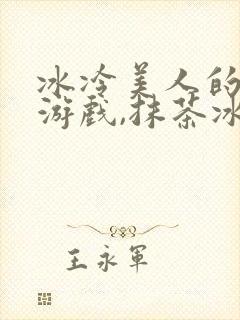 冰冷美人的
游戏,抹茶冰
王永军